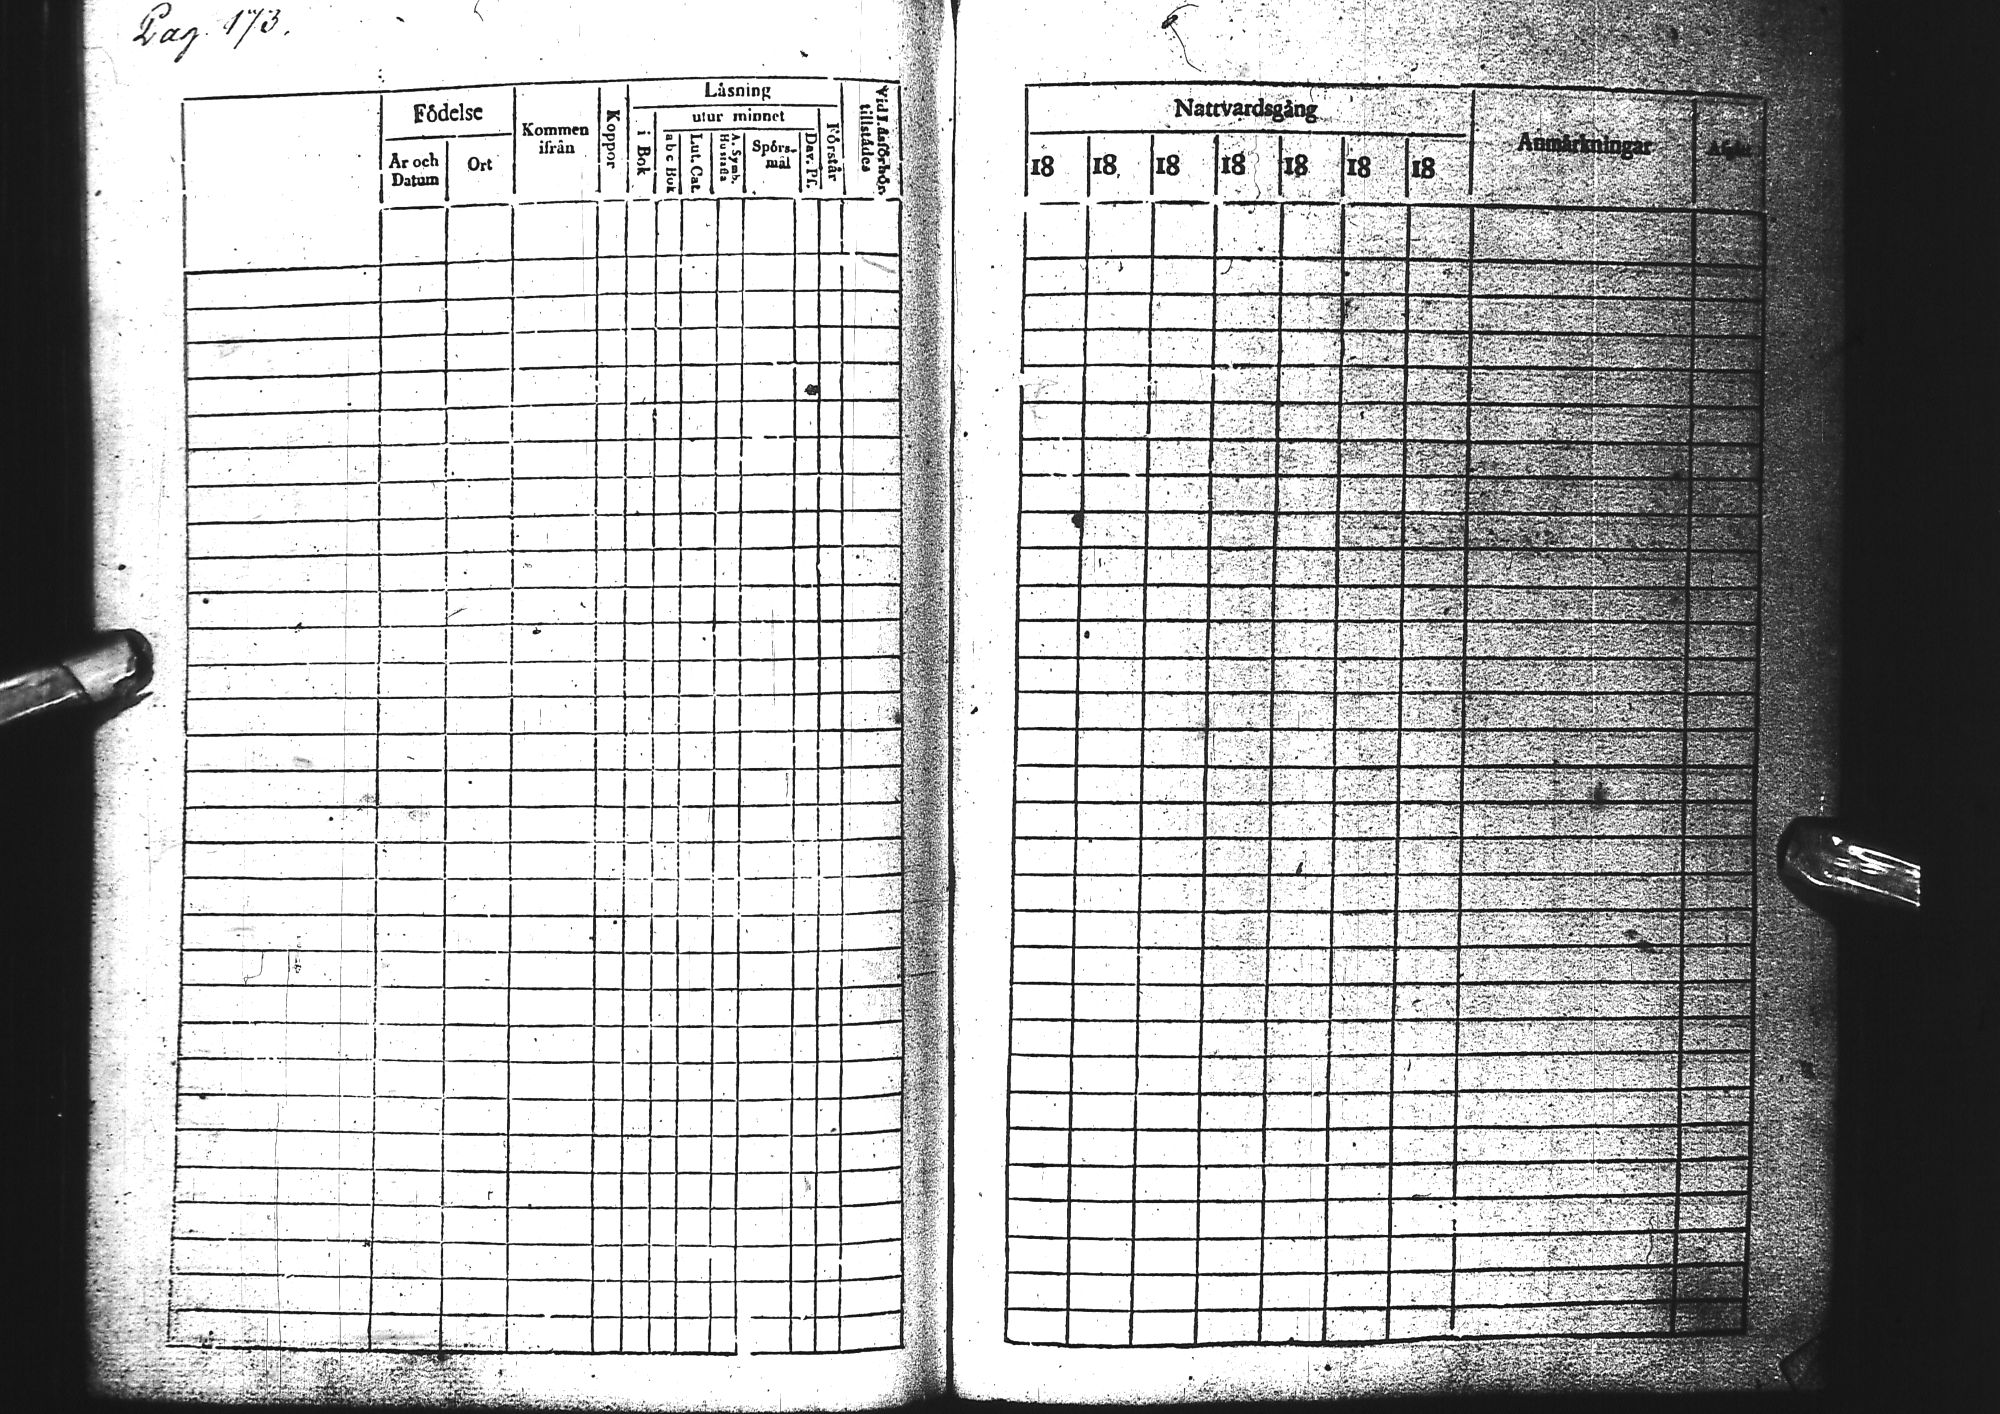 Pag. 173.
Födelse
År och
Datum
Ort
Kommen
ifrån
Koppor
Läsning
i Bok
utur minnet
abc Bok
Lut. Cat.
A. Symb.
Hustafla
Spörs-
mål
Dav. Ps.
Förstår
Vid Läsförhör
tillstädes
Nattvardsgång
18 18 18 18 18 18 18
Anmärkningar